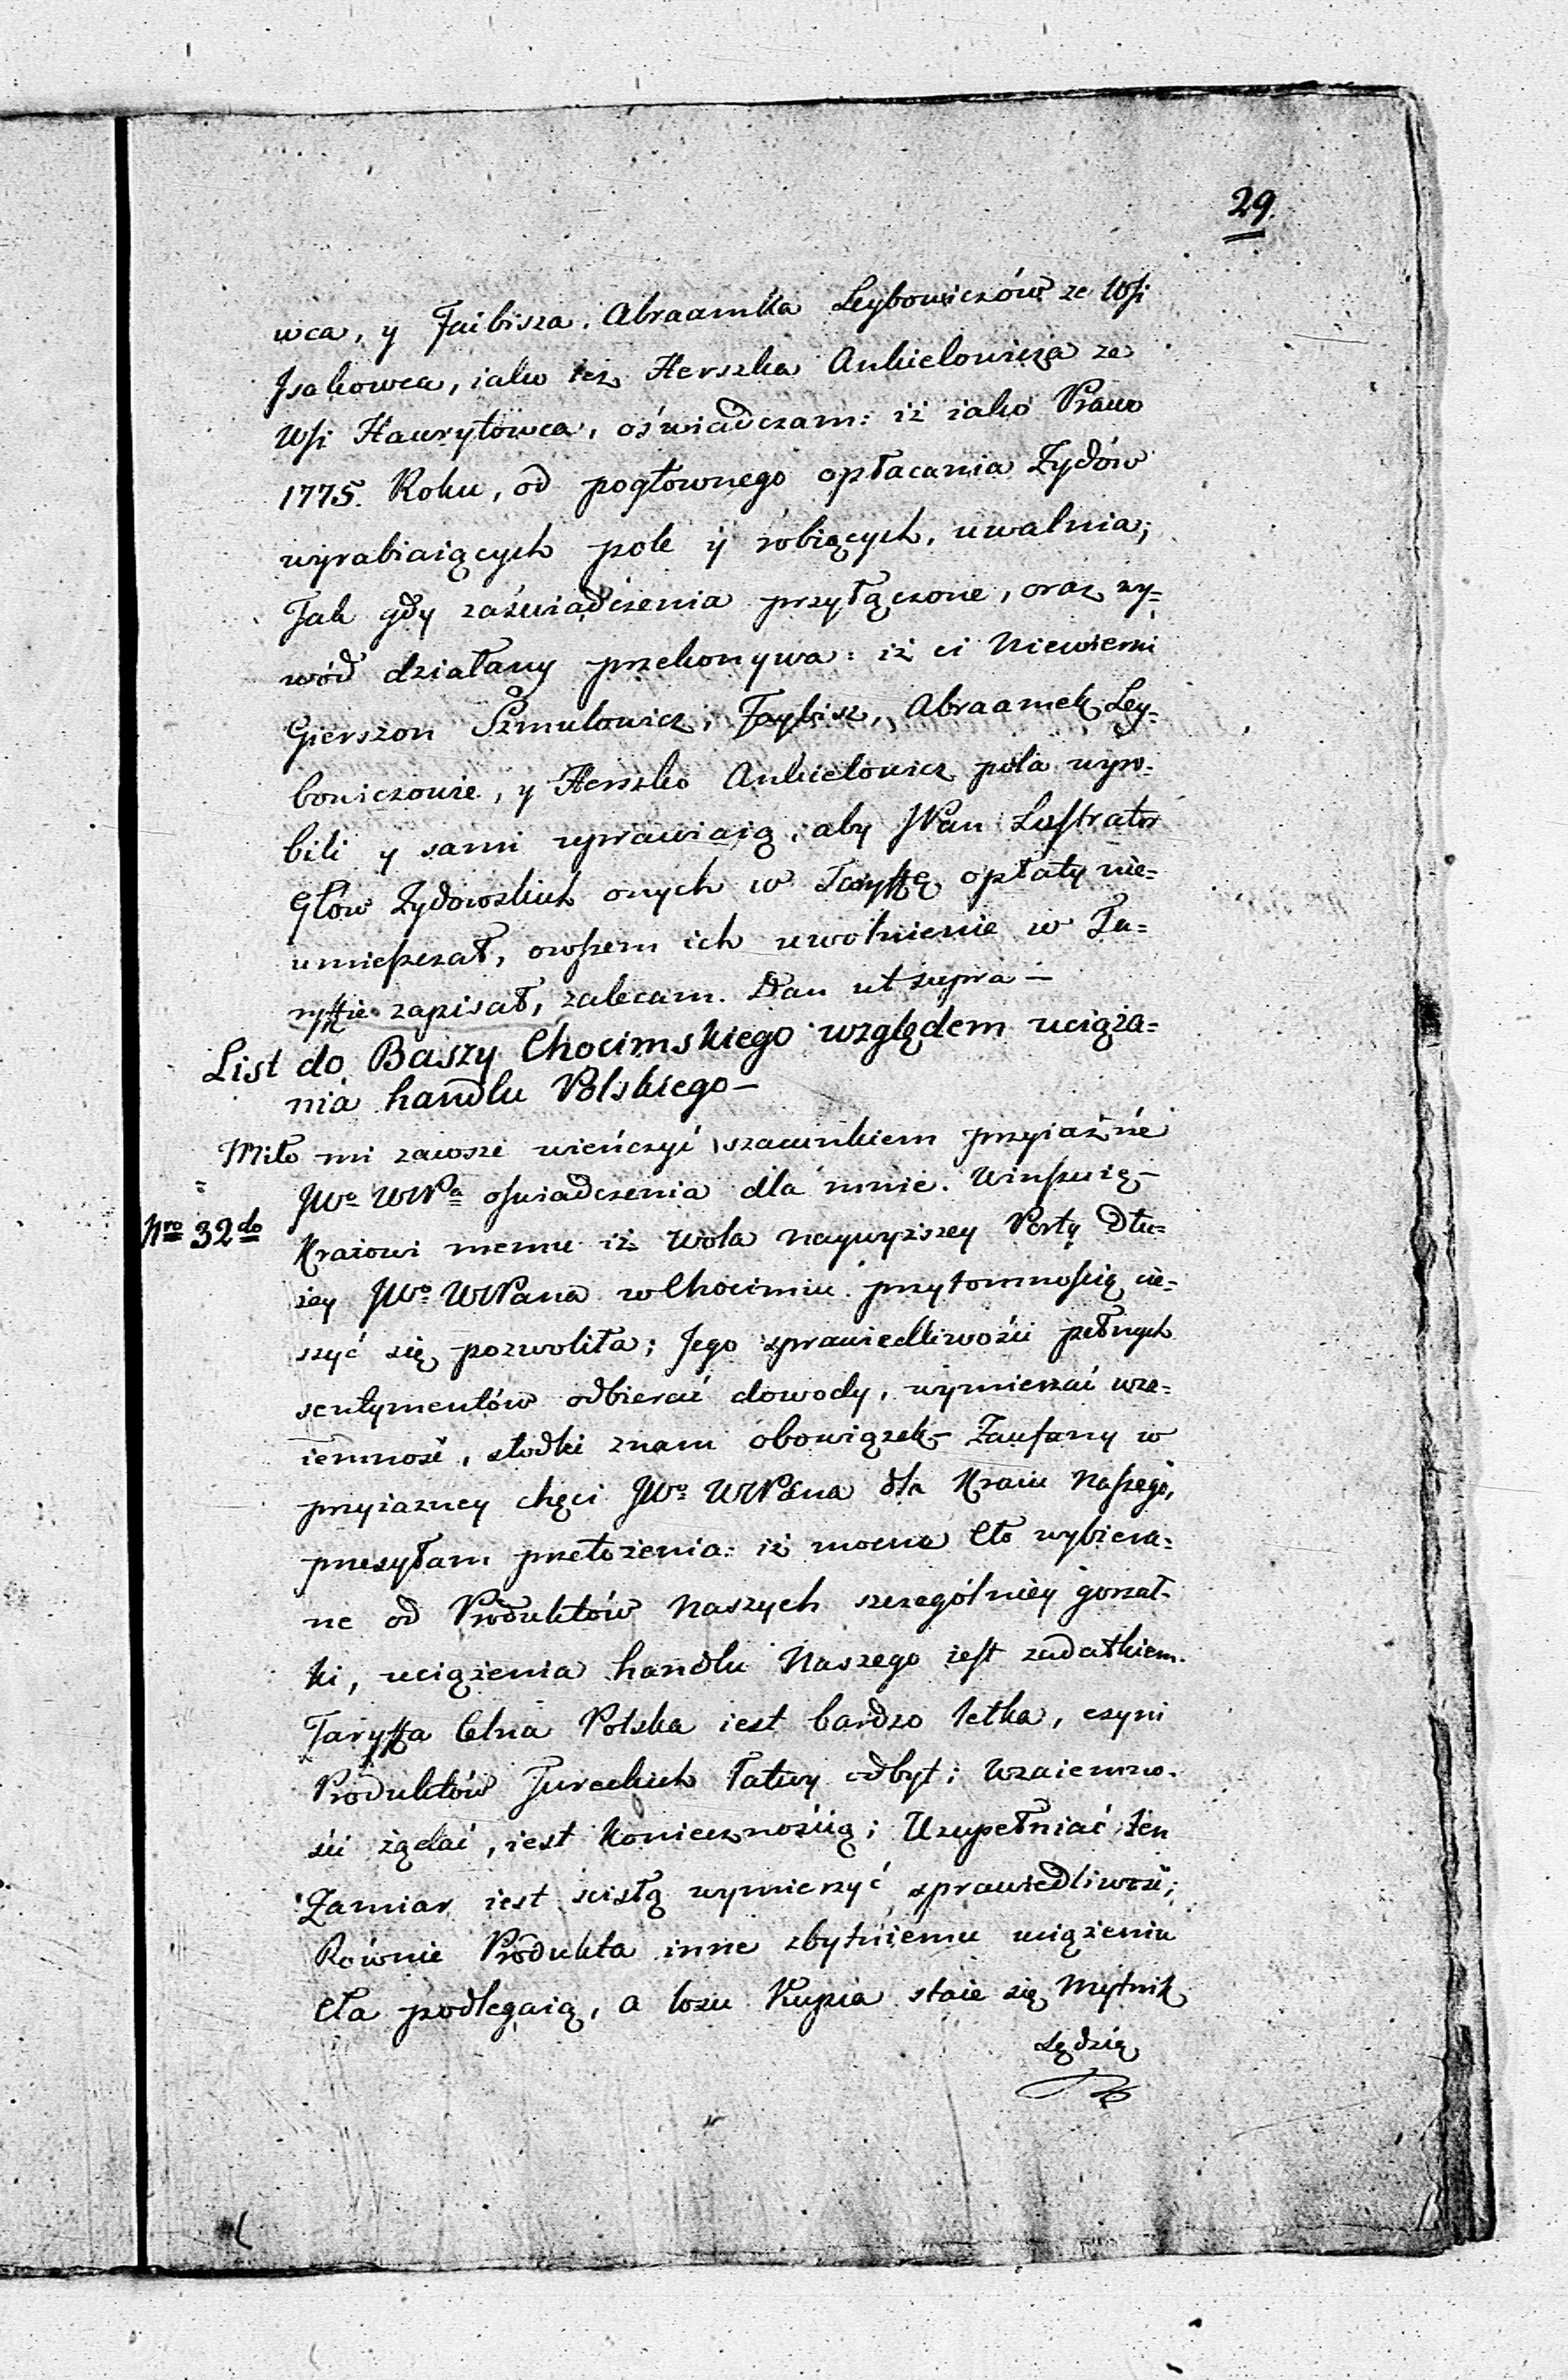 29.
wca, y Faibisza, Abraamka Leybowiczów ze Wsi
Isakowca, iako też Herszka Ankielowicza ze
Wsi Hawryłowca, oświadczam: iż iako Prawo
1775. Roku, od pogłownego opłacania Żydów
wyrabiaiących pole y robiących, uwalnia;
Tak gdy zaświadczenia przyłączone, oraz wy=
wód działany przekonywa: iż ci Niewierni
Gierszon Szmulowicz, Faybisz, Abraamek Ley=
bowiczowie, y Herszko Ankielowicz pola wyro=
bili y sami uprawiaią, aby JPan Lustrator
Głów Żydowskich onych w Taryffę opłaty nie=
umieszczał, owszem ich uwolnienie w Ta=
ryffie zapisał, zalecam. Dan ut supra —
List do Baszy Chocimskiego względem uciąża=
nia handlu Polskiego —
Miło mi zawsze wieńczyć szacunkiem przyiaźne
JWo WPa oświadczenia dla mnie. Winszuię —
Nro 32do
Kraiowi memu iż Wola naywyższey Porty dłu=
żey JWo WPana w Chocimiu przytomnością cie=
szyć się pozwoliła; Jego sprawiedliwości pełnych
sentymentów odbierać dowody, wymierzać wza=
iemność, słodki znam obowiązek — Zaufany w
przyiazney chęci JWo WPana dla Kraiu Naszego,
przesyłam przełożenia: iż mocne Cło wybiera=
ne od Produktów Naszych szczególniey gorzał=
ki, uciążenia handlu Naszego iest zadatkiem.
Taryffa Celna Polska iest bardzo letka, czyni
Produktów Tureckich łatwy odbyt; Wzaiemno=
ści żądać, iest koniecznością; Uzupełniać ten
Zamiar iest scisłą wymierzyć sprawiedliwość;
Równie Produkta inne zbytniemu uciążeniu
Cła podlegaią, a losu Kupca staie się Mytnik
Sędzią